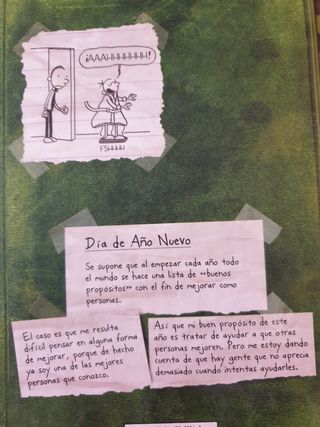 ¡AAAHHHHHHH!
FSHHHH
Día de Año Nuevo
Se supone que al empezar cada año todo
el mundo se hace una lista de «buenos
propósitos» con el fin de mejorar como
personas.
El caso es que me resulta
difícil pensar en alguna forma
de mejorar, porque de hecho
ya soy una de las mejores
personas que conozco.
Así que mi buen propósito de este
año es tratar de ayudar a que otras
personas mejoren. Pero me estoy dando
cuenta de que hay gente que no aprecia
demasiado cuando intentas ayudarles.